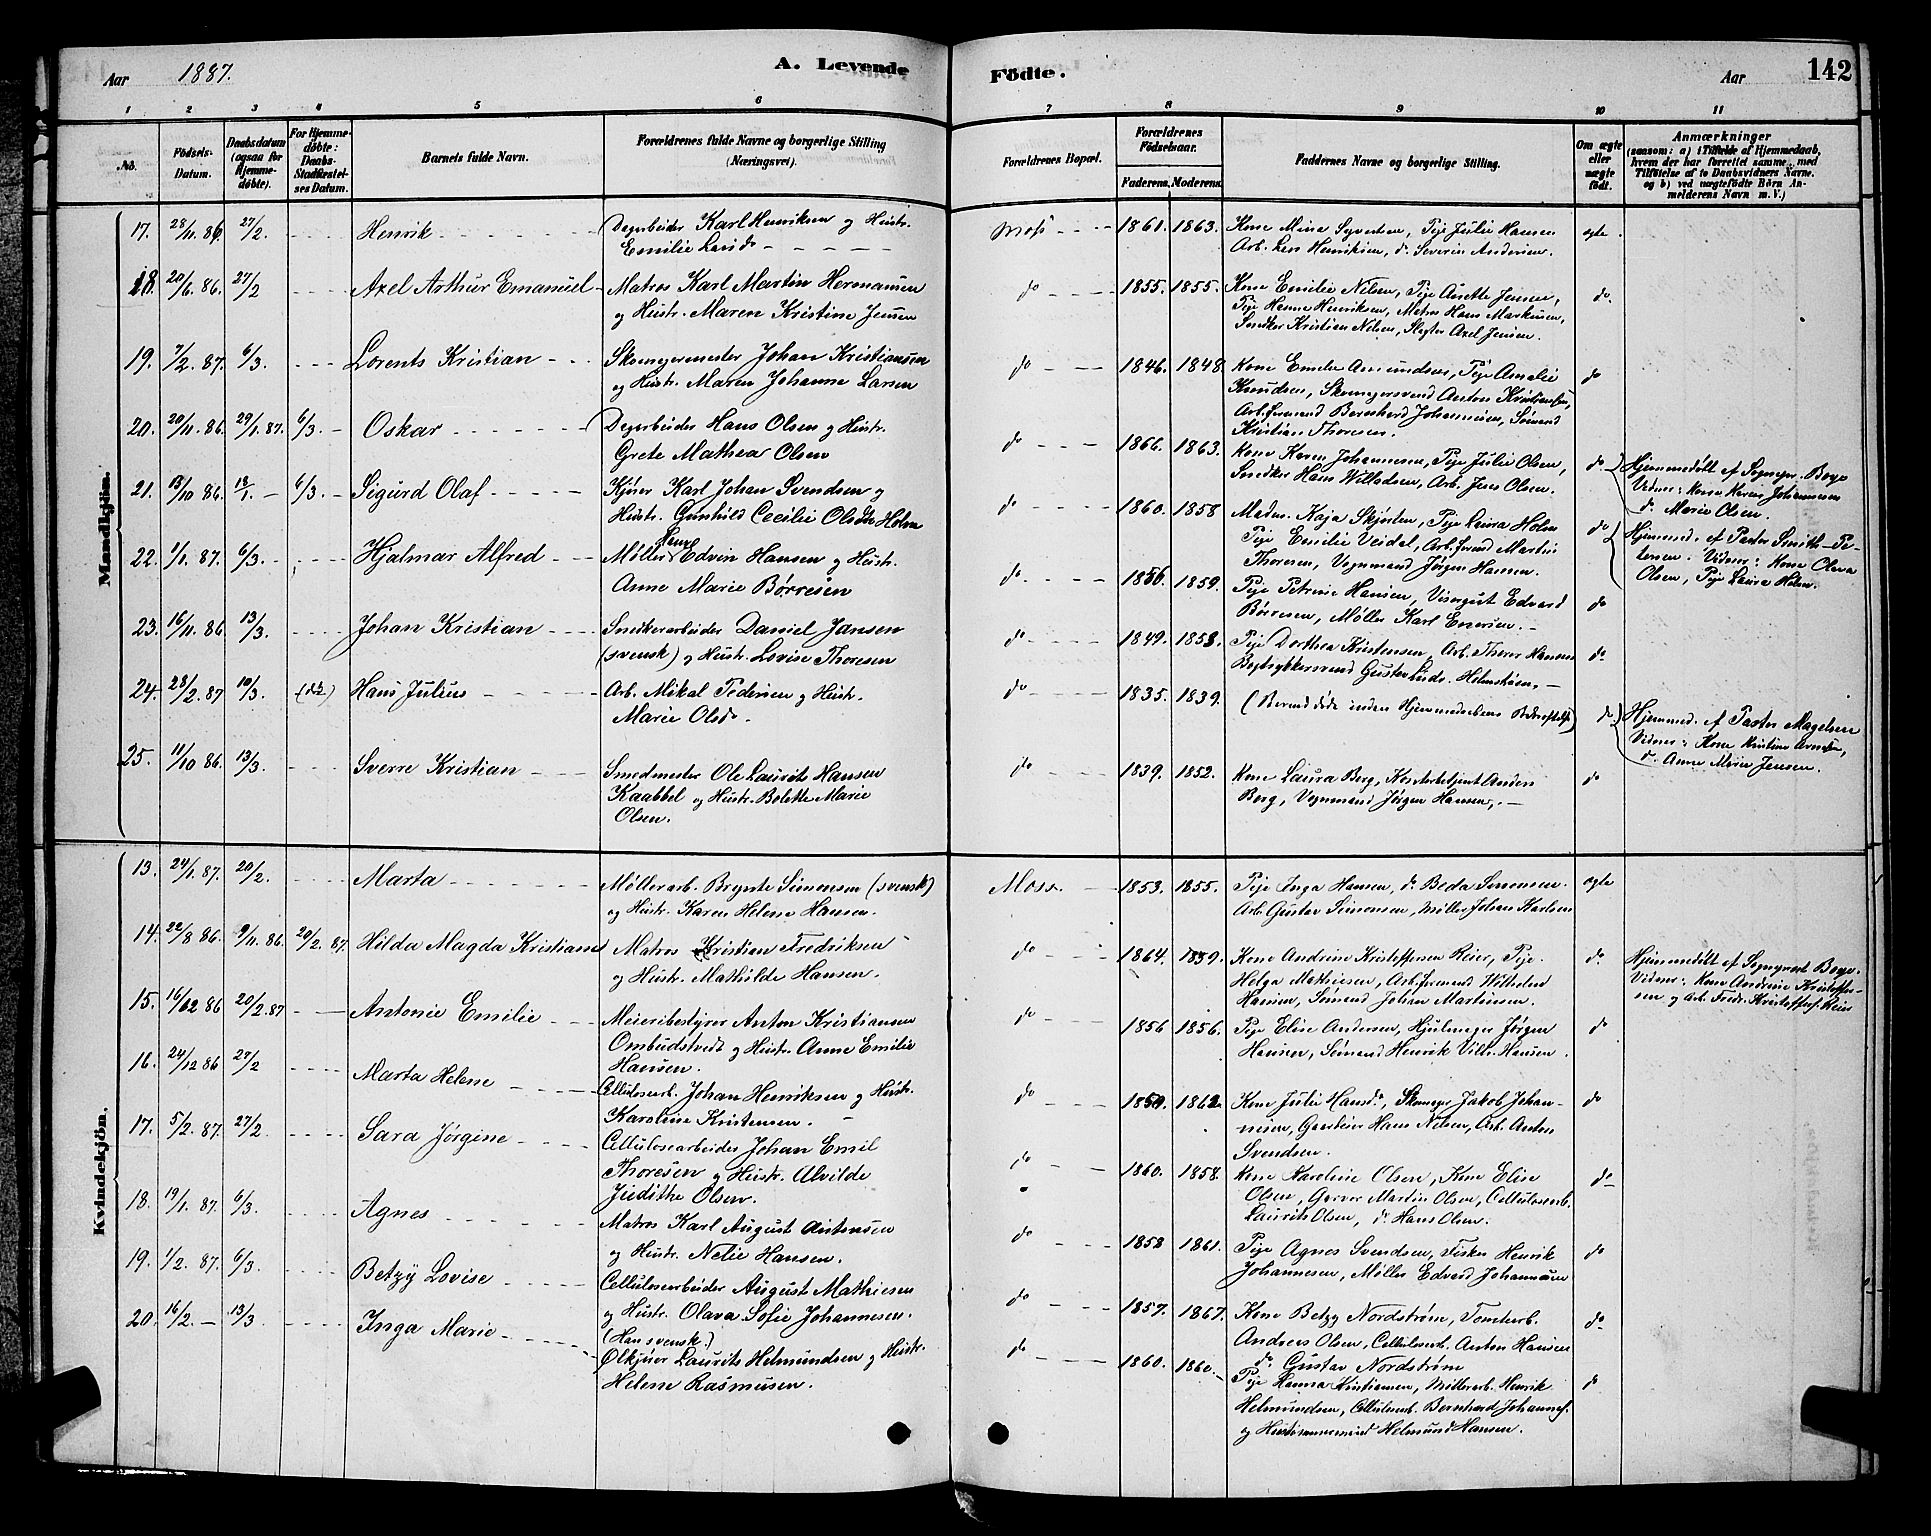 Aar 1887. A. Levende Födte. Aar 142
1 2 3 4 5 6 7 8 9 10 11
No. Födsels-Datum. Daabsdatum (ogsaa for Hjemmedøbte). For Hjemmedøbte: Daabs-Stadfæstelses Datum. Barnets fulde Navn. Forældrenes fulde Navne og borgerlige Stilling (Næringsvei). Forældrenes Bopæl. Forældrenes Födselsaar. Faderens. Moderens. Faddernes Navne og borgerlige Stilling. Om ægte eller uægte födt. Anmærkninger (saasom: a) i Tilfælde af Hjemmedaab, hvem der har forrettet samme, med Tilföielse af to Daabsvidners Navne. og b) ved uægtefödte Börn Anmelderens Navn m. V.)
Mandkjön.
17. 28/11. 86. 27/2. Henrik Dagarbeider Karl Henriksen og Hustr. Moss 1861. 1863. Kone Mina Syvertsen, Pige Julie Hansen ægte.
Emilie Larsd. Arb. Lars Henriksen, do. Severin Andersen.
18. 20/6. 86. 27/2 Axel Arthur Emanuel Matros Karl Martin Hermansen do 1855. 1855. Kone Emilie Nilsen, Pige Anette Jensen, do.
og Hustr. Maren Kristine Jensen Pige Hanna Henriksen, Matros Hans Markusen,
Snedker Kristian Nilsen, Slagter Axel Jensen.
19. 7/2. 87. 6/3. Lorents Kristian Skomagermester Johan Kristiansen do 1846. 1848 Kone Emilie Amundsen, Pige Amalie do
og Hustr. Maren Johanne Larsen Knudsen, Skomagersvend Anton Kristiansen,
Arb.formand Bernhard Johannesen, Sömand
Kristian Thoresen.
20. 20/11. 86. 29/1. 87. 6/3. Oskar Dagarbeider Hans Olsen og Hustr. do 1866. 1863. Kone Karen Johannesen, Pige Julie Olsen, do Hjemmedöbt af Sognepr. Borge
Grete Mathea Olsen Snedker Hans Willadsen, Arb. Jens Olsen. Vidner: Kone Karen Johannesen
do. Marie Olsen.
21. 13/10 86. 18/1. 6/3. Sigurd Olaf Kjører Karl Johan Svendsen og do 1860. 1858 Madm. Kaja Skjørten, Pige Laura Holm do Hjemmed. af Pastor Smith-Pe-
Hustr. Gunhild Cecilie Olsdtr Holm Pige Emilie Veidal, Arb.formand Martin tersen. Vidner: Kone Olava
Thoresen, Vognmand Jørgen Hansen. Olsen, Pige Laura Holm.
22. 1/1. 87. 6/3. Hjalmar Alfred Møller Edvin Hansen og Hustr. do. 1856. 1859. Pige Petrine Hansen, Visergut Edvard do
Anne Marie Børresen Børresen, Møller Karl Enersen.
23. 16/11. 86. 13/3. Johan Kristian Snedkerarbeider Daniel Jansen do 1849. 1858. Pige Dorthea Kristensen, Arb. Thorer Hansen do
(svensk) og Hustr. Lovise Thoresen Bogtrykkersvend Gustav Ludv. Holmstrøm.
24. 28/2. 87 10/3. (d2) Hans Julius Arb. Mikal Pedersen og Hustr. do 1835. 1839. (Barnet döde inden Hjemmedaabens Bekræftelse) do. Hjemmed. af Pastor Magelssen
Marie Olsd. Vidner: Kone Kristine Arnesen,
do. Anne Marie Jensen.
25. 11/10 86. 13/3. Sverre Kristian Smedmester Ole Laurits Hansen do 1839. 1852. Kone Laura Berg, Kontorbetjent Anders do
Kaabbel og Hustr. Bolette Marie Berg, Vognmand Jørgen Hansen,
Olsen.
Kvindekjön.
13. 24/1. 87. 20/2. Marta Møllerarb. Brynte Simonsen (svensk) Moss. 1853. 1855. Pige Inga Hansen, do Beda Simonsen. ægte
og Hustr. Karen Helene Hansen. Arb. Gustav Simonsen, Møller Johan Karlsen
14. 22/8 86. 9/11. 86. 20/2. 87. Hilda Magda Kristiane Matros Kristian Fredriksen do 1864. 1859. Kone Andrine Kristoffersen Reier, Pige do. Hjemmedöbt af Sogneprest Borge.
og Hustr. Mathilde Hansen. Helga Mathiesen, Arb.formand Wilhelm Vidner: Kone Andrine Kristoffer-
Hansen, Sømand Johan Martinsen. sen og Arb. Fredr. Kristoffers. Reier
15. 16/12 86 20/2. 87 Antonie Emilie Meieribestyrer Anton Kristiansen do 1856 1856. Pige Elise Andersen, Hjulmager Jørgen do
Ombudstvedt og Hustr. Anne Emilie Hansen, Sømand Henrik Vilh. Hansen.
Hansen.
16. 24/12 86 27/2 Marta Helene Cellulosearb. Johan Henriksen og Hustr. do 1859. 1862. Kone Julie Hansd., Skomager Jakob Johan- do
Karoline Kristensen. nesen, Garveier Hans Nilsen, Arb. Anton
Svendsen.
17. 5/2. 87. 27/2. Sara Jørgine Cellulosearbeider Johan Emil do 1860. 1858. Kone Karoline Olsen, Kone Elise do
Thoresen og Hustr. Alvilde Olsen, Garver Martin Olsen, Cellulosearb.
Judithe Olsen. Laurits Olsen, do Hans Olsen.
18. 19/1. 87. 6/3. Agnes Matros Karl August Antonsen do 1858 1861. Pige Agnes Svendsen, Fisker Henrik do
og Hustr. Nelie Hansen. Johannesen, Møller Edvard Johannesen
19. 1/2. 87. 6/3. Betzy Lovise Cellulosearbeider August Mathiesen do 1857. 1867. Kone Betzy Nordstrøm, Tomtearb. do
og Hustr. Olava Sofie Johannesen. Andreas Olsen, Cellulosearb. Anton Hansen
(Han svensk.) do Gustav Nordstrøm
20. 16/2. 13/3. Inga Marie Ølkjører Laurits Helmundsen og Hustr. do 1860. 1860. Pige Hanna Kristiansen, Møllerarb. Henrik do
Helene Rasmussen. Helmundsen, Cellulosearb. Bernhard Johannes.
og Helmund Hansen.